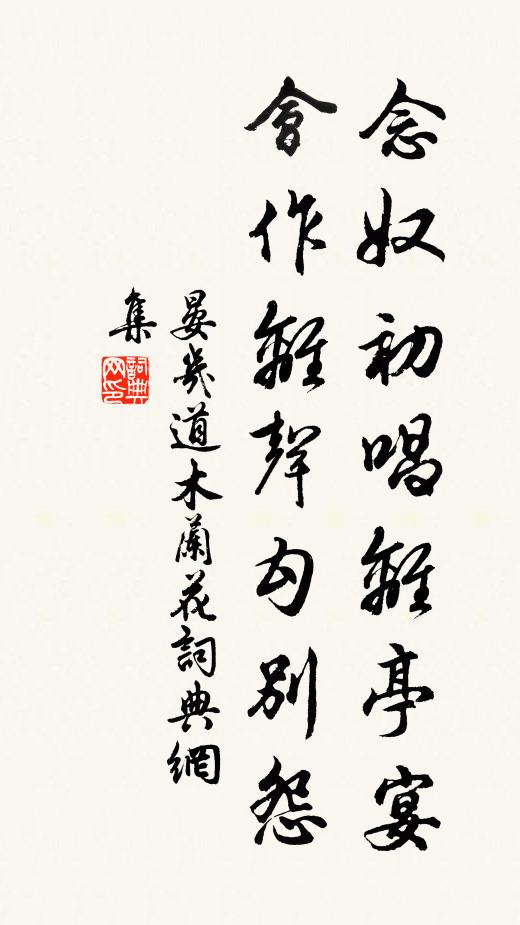 念奴初唱離亭宴
會作離聲勾別怨
晏幾道木蘭花詞典網
集
詞典网印